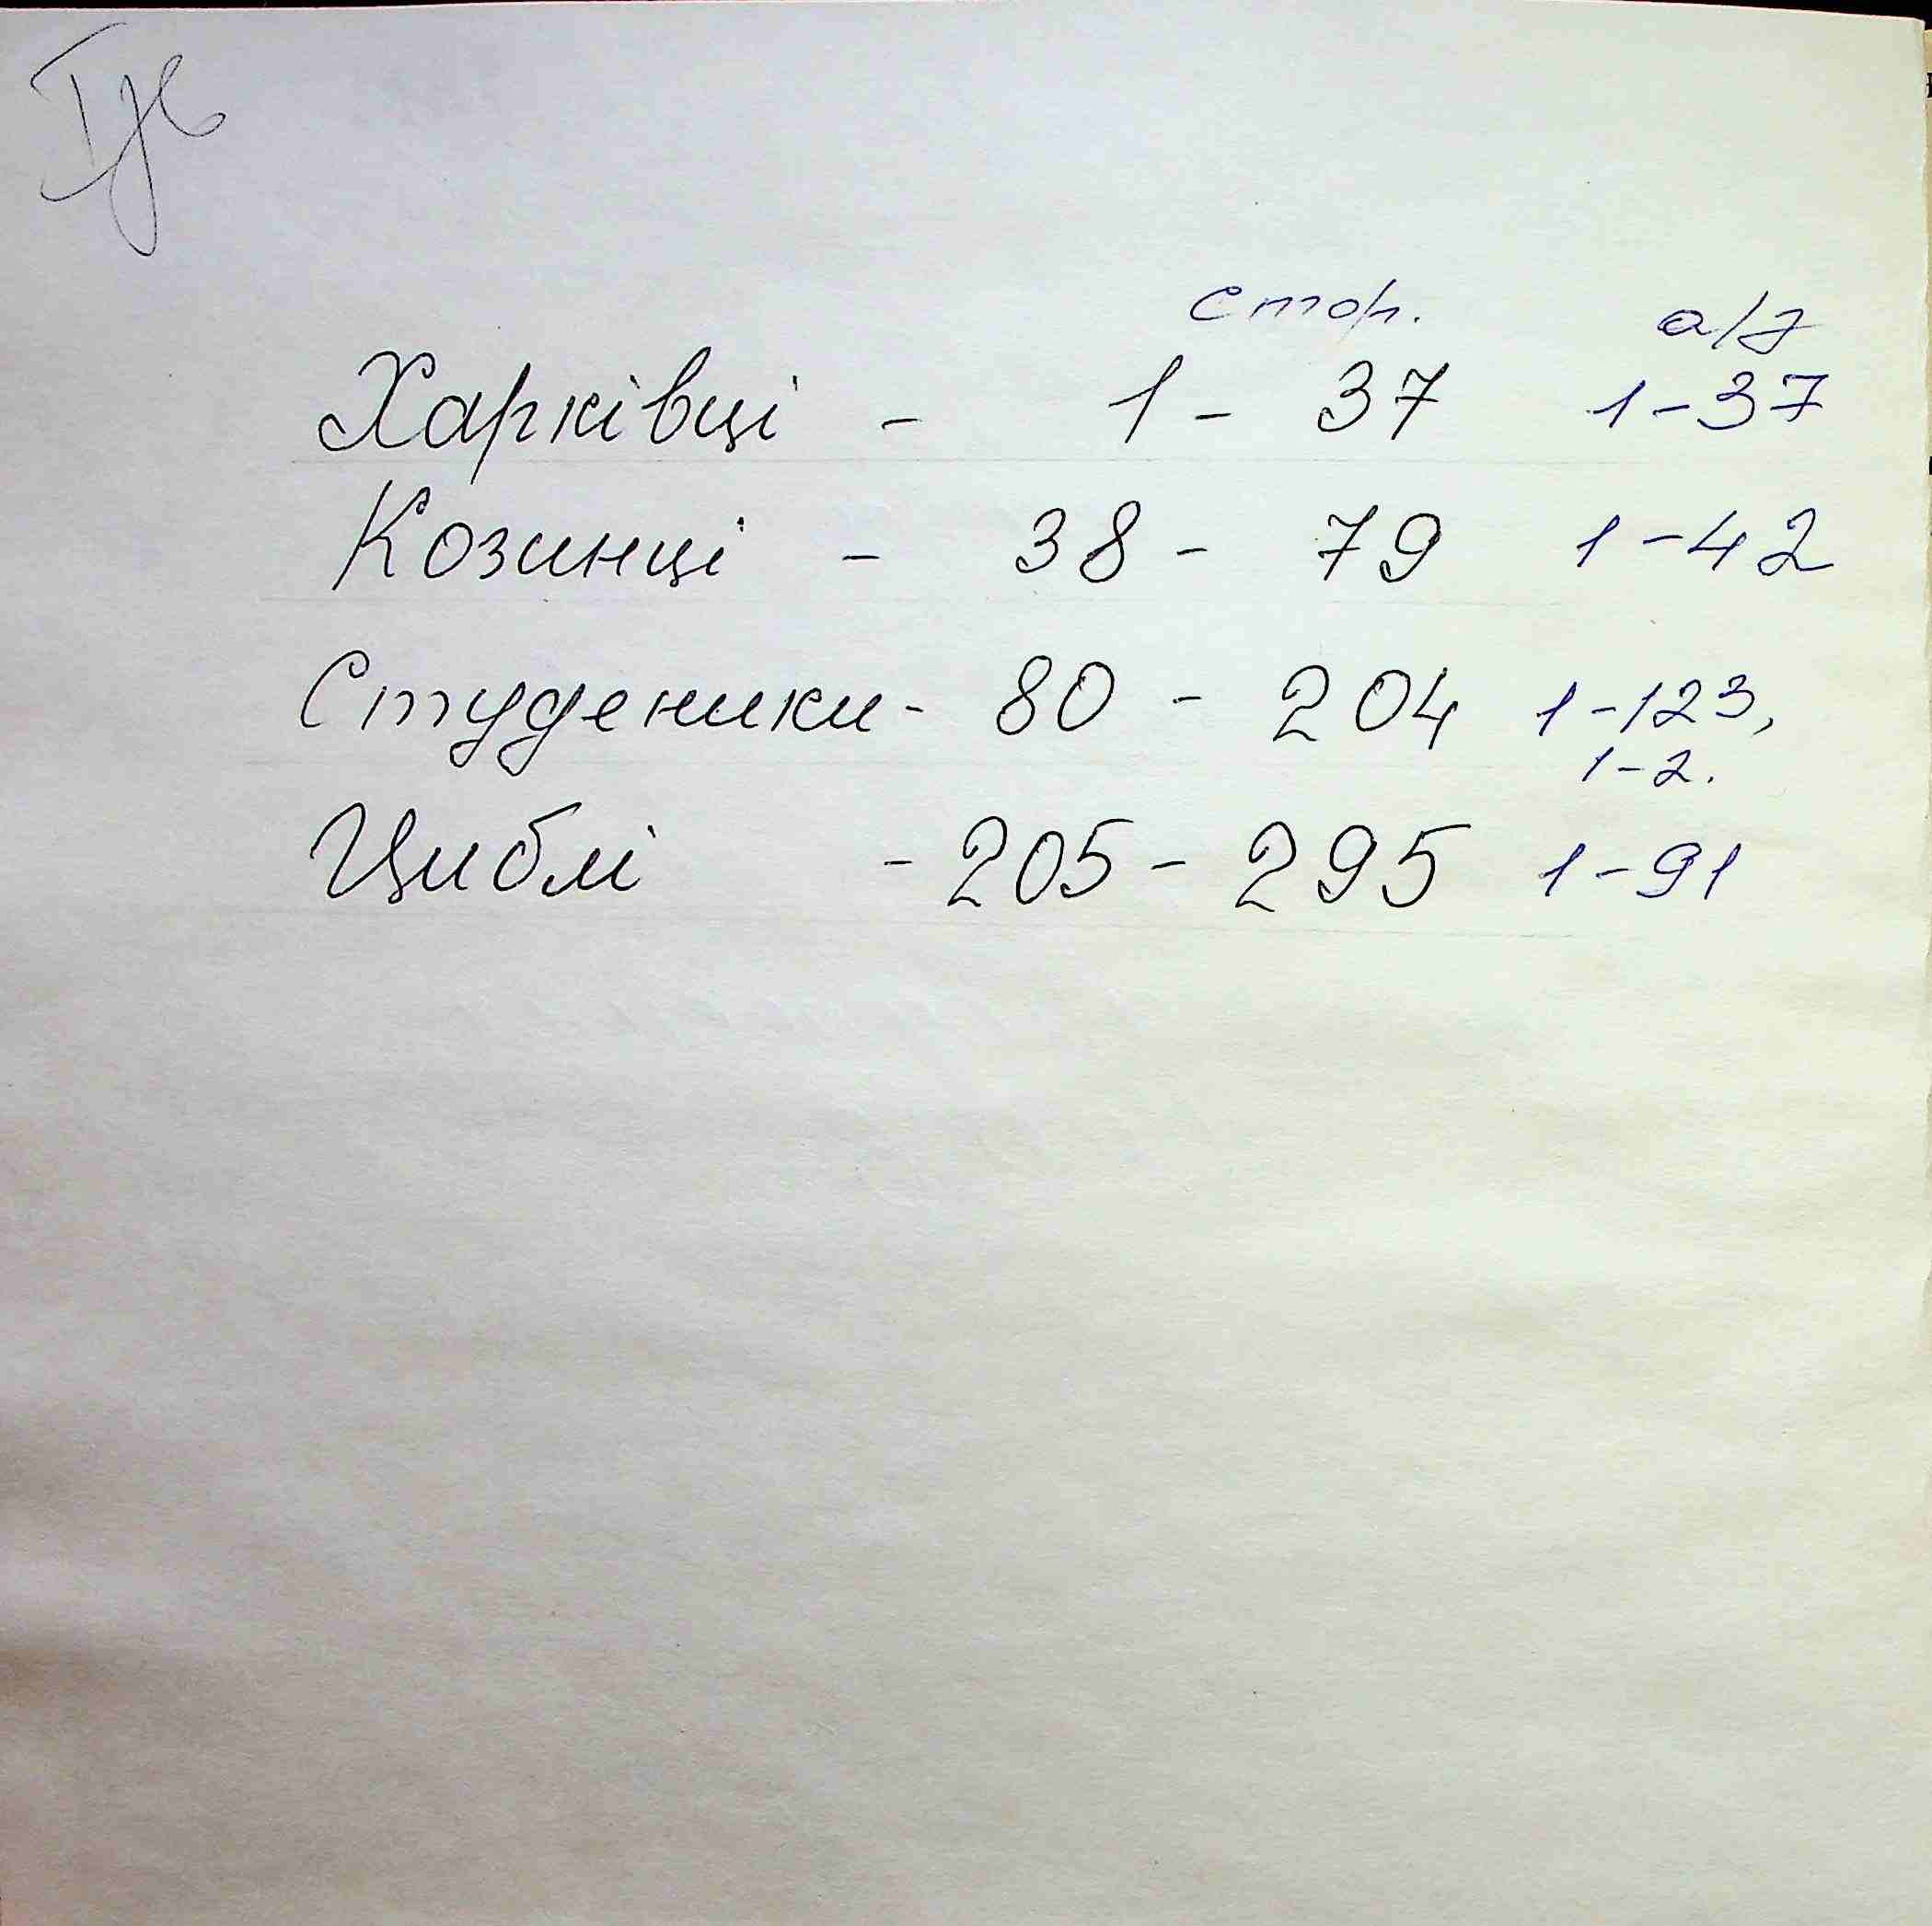 стор. а/з
Харківці - 1 - 37 1-37
Козинці - 38 - 79 1-42
Студеники - 80 - 204 1-123,
1-2.
Циблі - 205 - 295 1-91